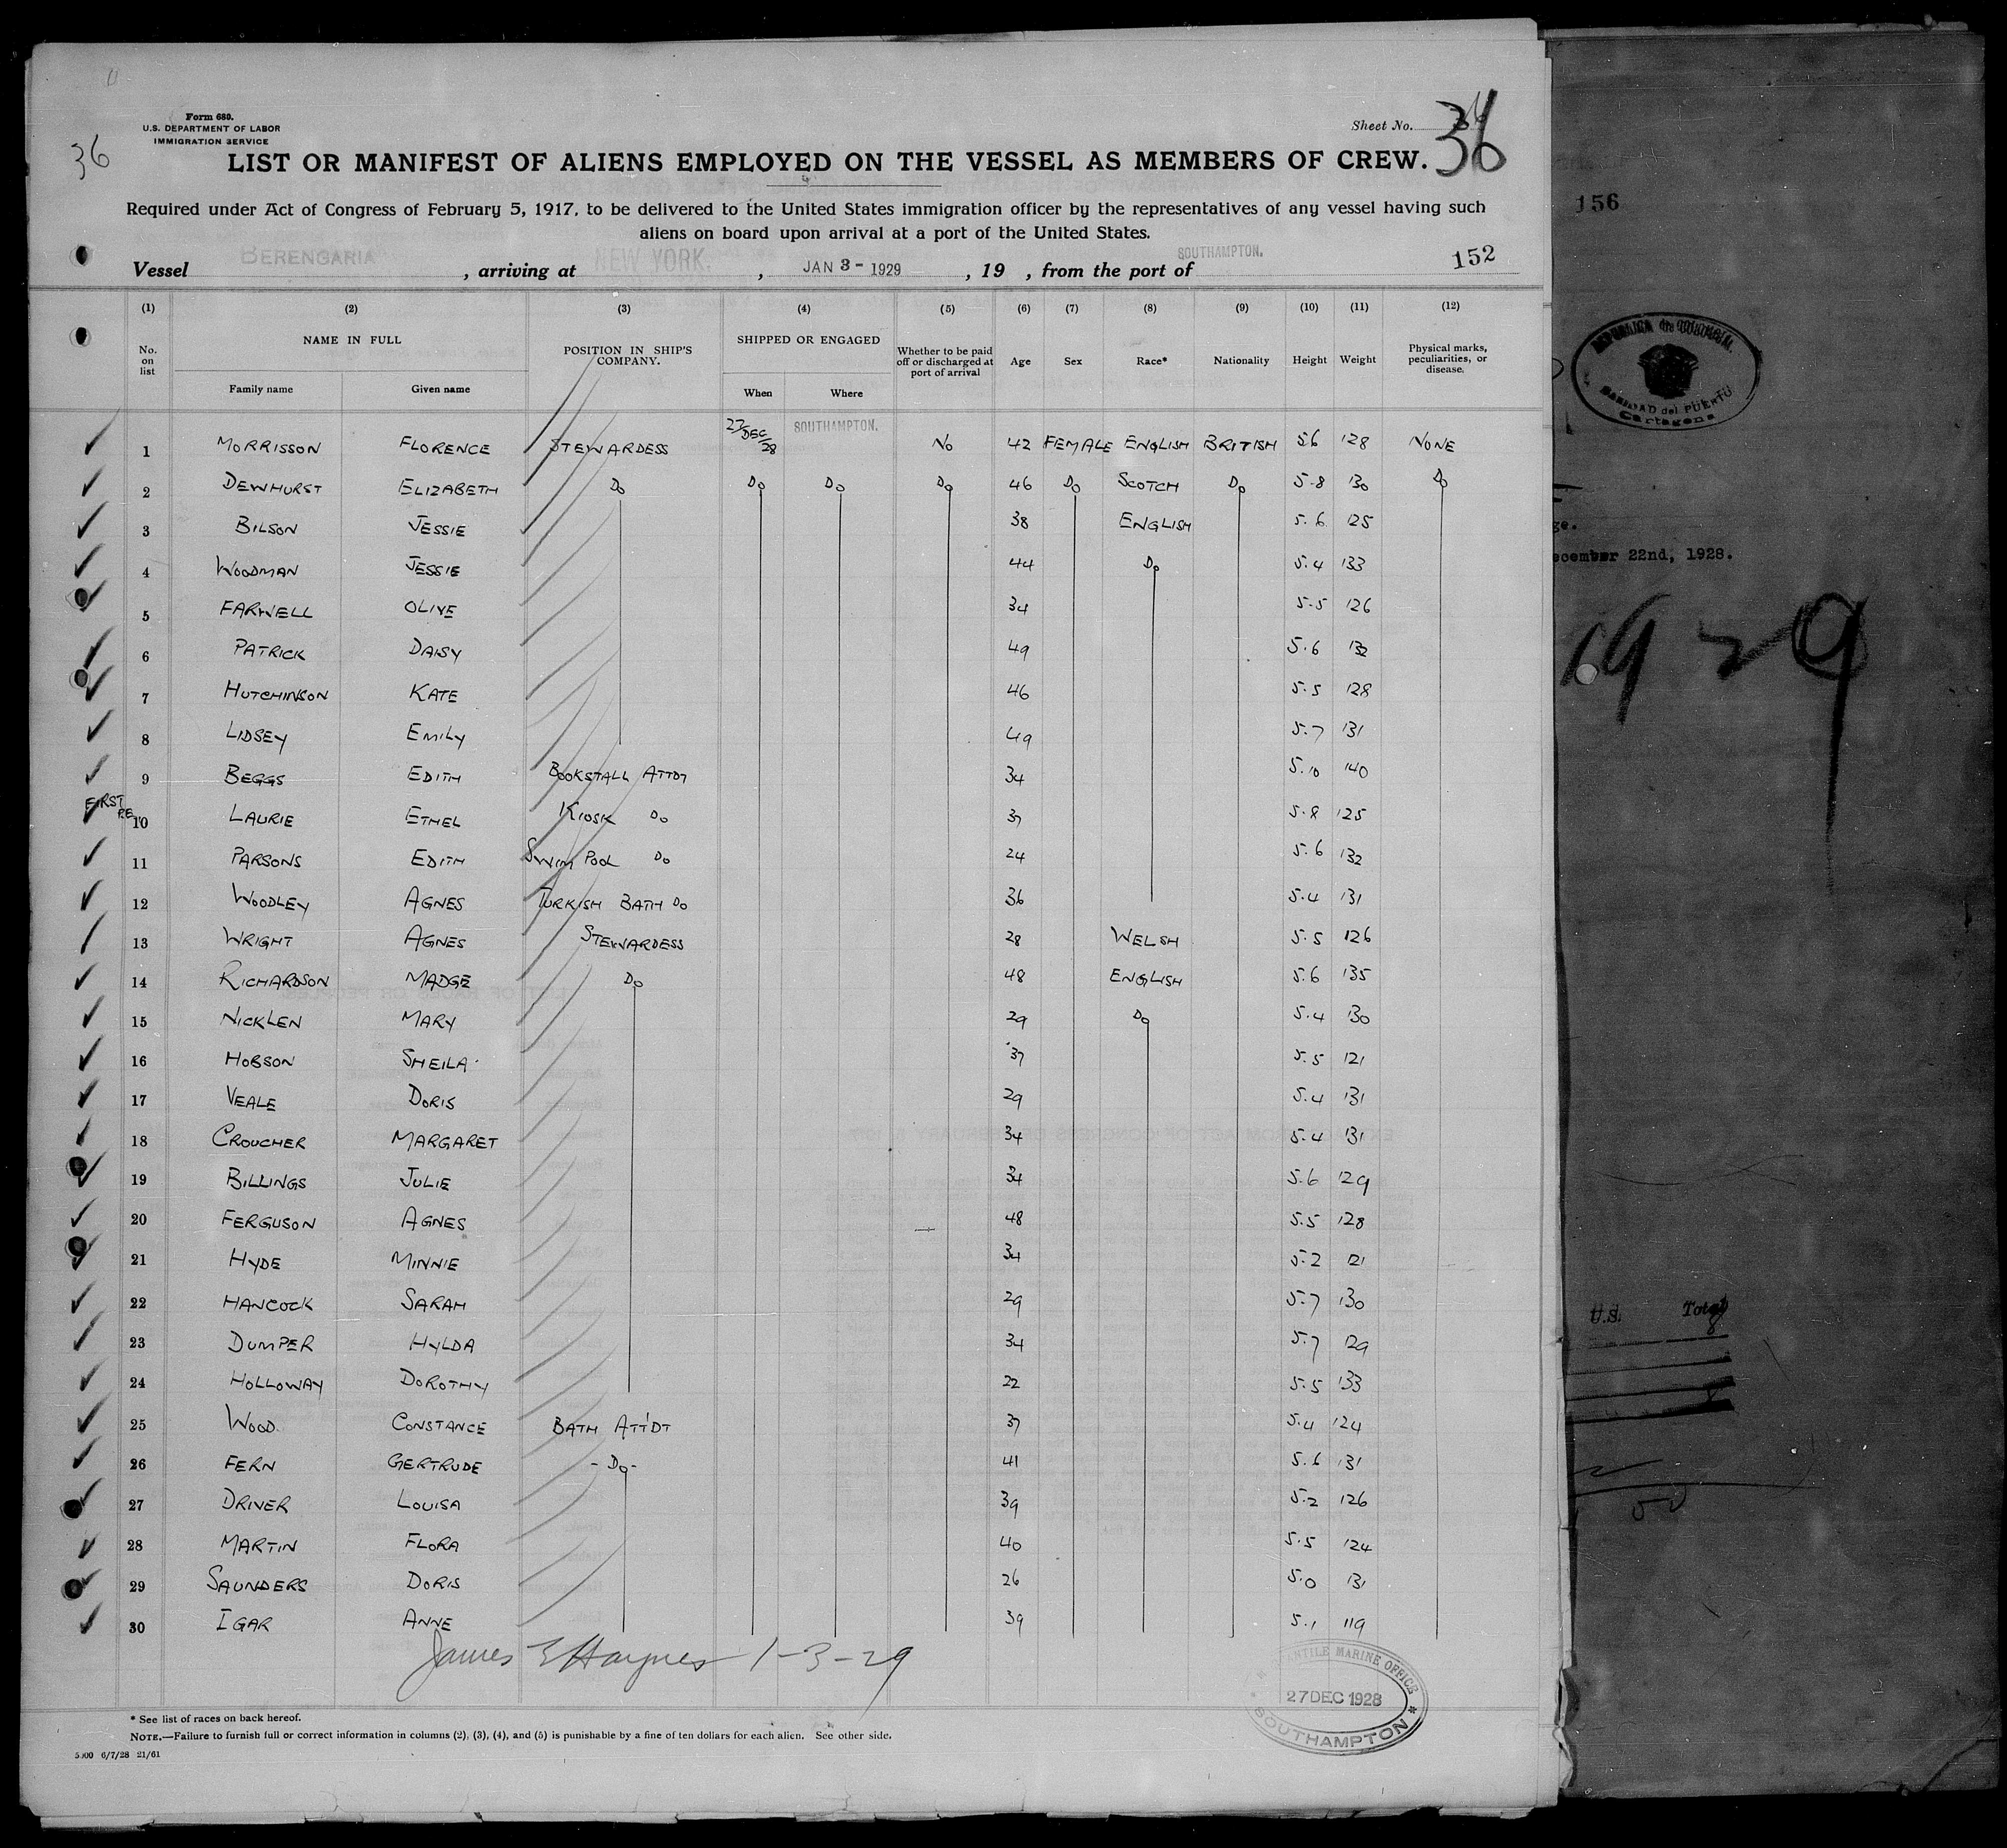 Form 680.
U.S. DEPARTMENT OF LABOR
IMMIGRATION SERVICE
36
Sheet No. 36
36
LIST OR MANIFEST OF ALIENS EMPLOYED ON THE VESSEL AS MEMBERS OF CREW.
Required under Act of Congress of February 5, 1917, to be delivered to the United States immigration officer by the representatives of any vessel having such
aliens on board upon arrival at a port of the United States.
Vessel BERENGARIA, arriving at NEW YORK., JAN 3 - 1929, 19 , from the port of SOUTHAMPTON. 152
(1) (2) (3) (4) (5) (6) (7) (8) (9) (10) (11) (12)
No. on list NAME IN FULL Family name Given name POSITION IN SHIP'S COMPANY. SHIPPED OR ENGAGED When Where Whether to be paid off or discharged at port of arrival Age Sex Race* Nationality Height Weight Physical marks, peculiarities, or disease.
1 MORRISSON FLORENCE STEWARDESS 27/DEC/28 SOUTHAMPTON. NO 42 FEMALE ENGLISH BRITISH 5.6 128 NONE
2 DEWHURST ELIZABETH Do Do Do Do 46 Do SCOTCH Do 5.8 130 Do
3 BILSON JESSIE 38 ENGLISH 5.6 125
4 WOODMAN JESSIE 44 Do 5.4 133
5 FARWELL OLIVE 34 5.5 126
6 PATRICK DAISY 49 5.6 132
7 HUTCHINSON KATE 46 5.5 128
8 LIDSEY EMILY 49 5.7 131
9 BEGGS EDITH BOOKSTALL ATTDT 34 5.10 140
FIRST
10 LAURIE ETHEL KIOSK Do 37 5.8 125
11 PARSONS EDITH SWIM POOL Do 24 5.6 132
12 WOODLEY AGNES TURKISH BATH Do 36 5.4 131
13 WRIGHT AGNES STEWARDESS 28 WELSH 5.5 126
14 RICHARDSON MADGE Do 48 ENGLISH 5.6 135
15 NICKLEN MARY 29 Do 5.4 130
16 HOBSON SHEILA 37 5.5 121
17 VEALE DORIS 29 5.4 131
18 CROUCHER MARGARET 34 5.4 131
19 BILLINGS JULIE 34 5.6 129
20 FERGUSON AGNES 48 5.5 128
21 HYDE MINNIE 34 5.2 121
22 HANCOCK SARAH 29 5.7 130
23 DUMPER HYLDA 34 5.7 129
24 HOLLOWAY DOROTHY 22 5.5 133
25 WOOD CONSTANCE BATH ATT'DT 37 5.4 124
26 FERN GERTRUDE -Do- 41 5.6 131
27 DRIVER LOUISA 39 5.2 126
28 MARTIN FLORA 40 5.5 124
29 SAUNDERS DORIS 26 5.0 131
30 IGAR ANNE 39 5.1 119
James E Haynes 1-3-29
MERCANTILE MARINE OFFICE
27 DEC 1928
SOUTHAMPTON
* See list of races on back hereof.
NOTE.—Failure to furnish full or correct information in columns (2), (3), (4), and (5) is punishable by a fine of ten dollars for each alien. See other side.
5000 6/7/28 21/61
156
SANIDAD del PUERTO
Cartagena
22nd, 1928.
1929
U.S. Total